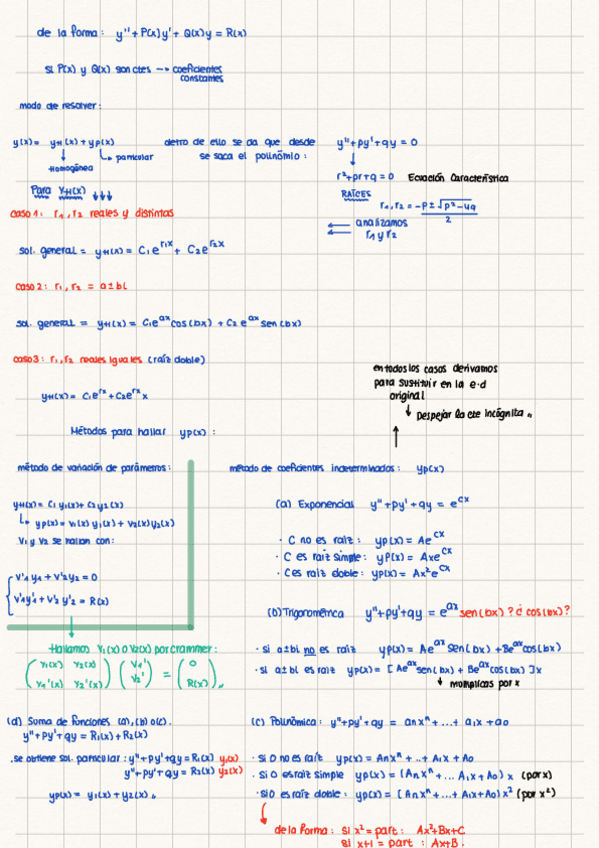 de la forma: y''+P(x)y'+Q(x)y = R(x)
si P(x) y Q(x) son ctes → coeficientes
constantes
modo de resolver:
y(x) = yH(x) + yp(x) detro de ello se da que desde y''+py'+qy = 0
se saca el polinomio:
Homogénea particular
r²+pr+q=0 Ecuación Característica
RAÍCES
Para YH(x) ↓↓↓
r1,r2 = -p±√p²-4q
2
caso 1: r1, r2 reales y distintas
analizamos
r1 y r2
sol. general = yH(x) = C1e^r1x + C2e^r2x
caso 2: r1, r2 = a±bi
sol. general = yH(x) = C1e^ax cos(bx) + C2 e^ax sen(bx)
caso 3: r1, r2 reales iguales (raíz doble)
yH(x) = C1e^rx + C2e^rx x
en todos los casos derivamos
para sustituir en la e.d
original
↓ Despejar la cte incógnita
Métodos para hallar yp(x):
método de variación de parámetros:
yH(x) = C1 y1(x) + C2 y2(x)
yp(x) = v1(x) y1(x) + v2(x) y2(x)
V1 y V2 se hallan con:
v'1y1 + v'2y2 = 0
v'1y'1 + v'2 y'2 = R(x)
Hallamos V1(x) o V2(x) por crammer:
(y1(x) y2(x)) (v1') = (0)
(y1'(x) y2'(x)) (v2') (R(x))
método de coeficientes indeterminados: yp(x)
(a) Exponencial y''+py'+qy = e^cx
· C no es raíz: yp(x) = Ae^cx
· C es raíz simple: yp(x) = Axe^cx
· C es raíz doble: yp(x) = Ax²e^cx
(b) Trigonométrica y''+py'+qy = e^ax sen(bx)? ó cos(bx)?
· si a±bi no es raíz yp(x) = Ae^ax sen(bx) + Be^ax cos(bx)
· si a±bi es raíz yp(x) = [Ae^ax sen(bx) + Be^ax cos(bx)]x
↓ multiplicas por x
(d) Suma de funciones (a), (b) o (c).
y''+py'+qy = R1(x)+R2(x)
. se obtiene sol. particular: y''+py'+qy = R1(x) y1(x)
y''+py'+qy = R2(x) y2(x)
yp(x) = y1(x)+y2(x)
(c) Polinómica: y''+py'+qy = anx^n + ... + a1x + a0
· si 0 no es raíz yp(x) = Anx^n + ..+ A1x + A0
· si 0 es raíz simple yp(x) = (Anx^n + ... A1x + A0) x (por x)
· si 0 es raíz doble: yp(x) = (Anx^n + ... + A1x + A0) x² (por x²)
de la forma: si x² = part: Ax²+Bx+C
si x+1 = part: Ax+B.